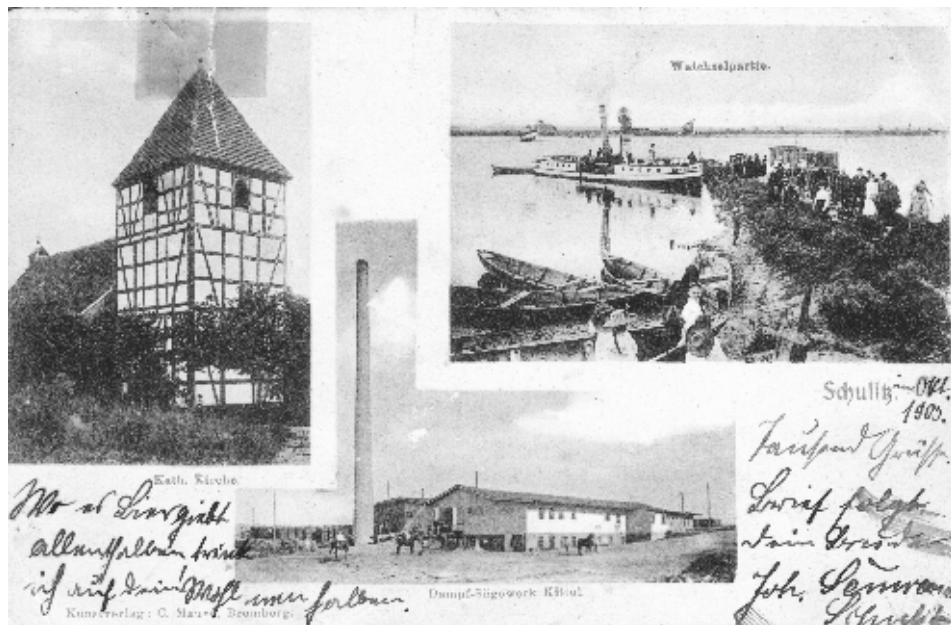 Weichselpartie.
Kath. Kirche.
Schulitz. im Okt.
1903.
Tausend Grüße.
Brief folgt
dein Bruder
Joh.
Schulitz
Wo es Bier giebt
allenthalben trink
ich auf dein Wohl nen halben.
Dampf-Sägewerk
Kunstverlag: C. Bromberg.